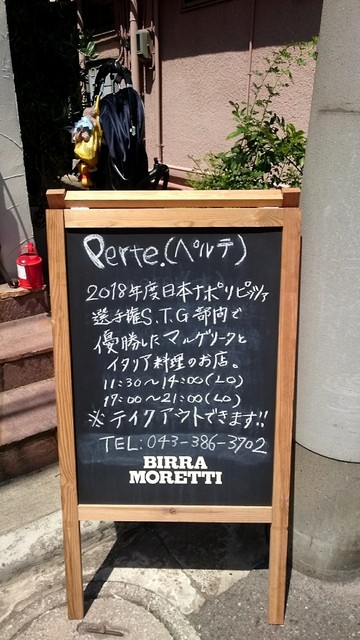 Perte.(ペルテ)
2018年度日本ナポリピッツァ
選手権S.T.G部門で
優勝したマルゲリータと
イタリア料理のお店。
11:30～14:00(LO)
17:00～21:00(LO)
※テイクアウトできます!!
TEL:043-386-3702
BIRRA
MORETTI